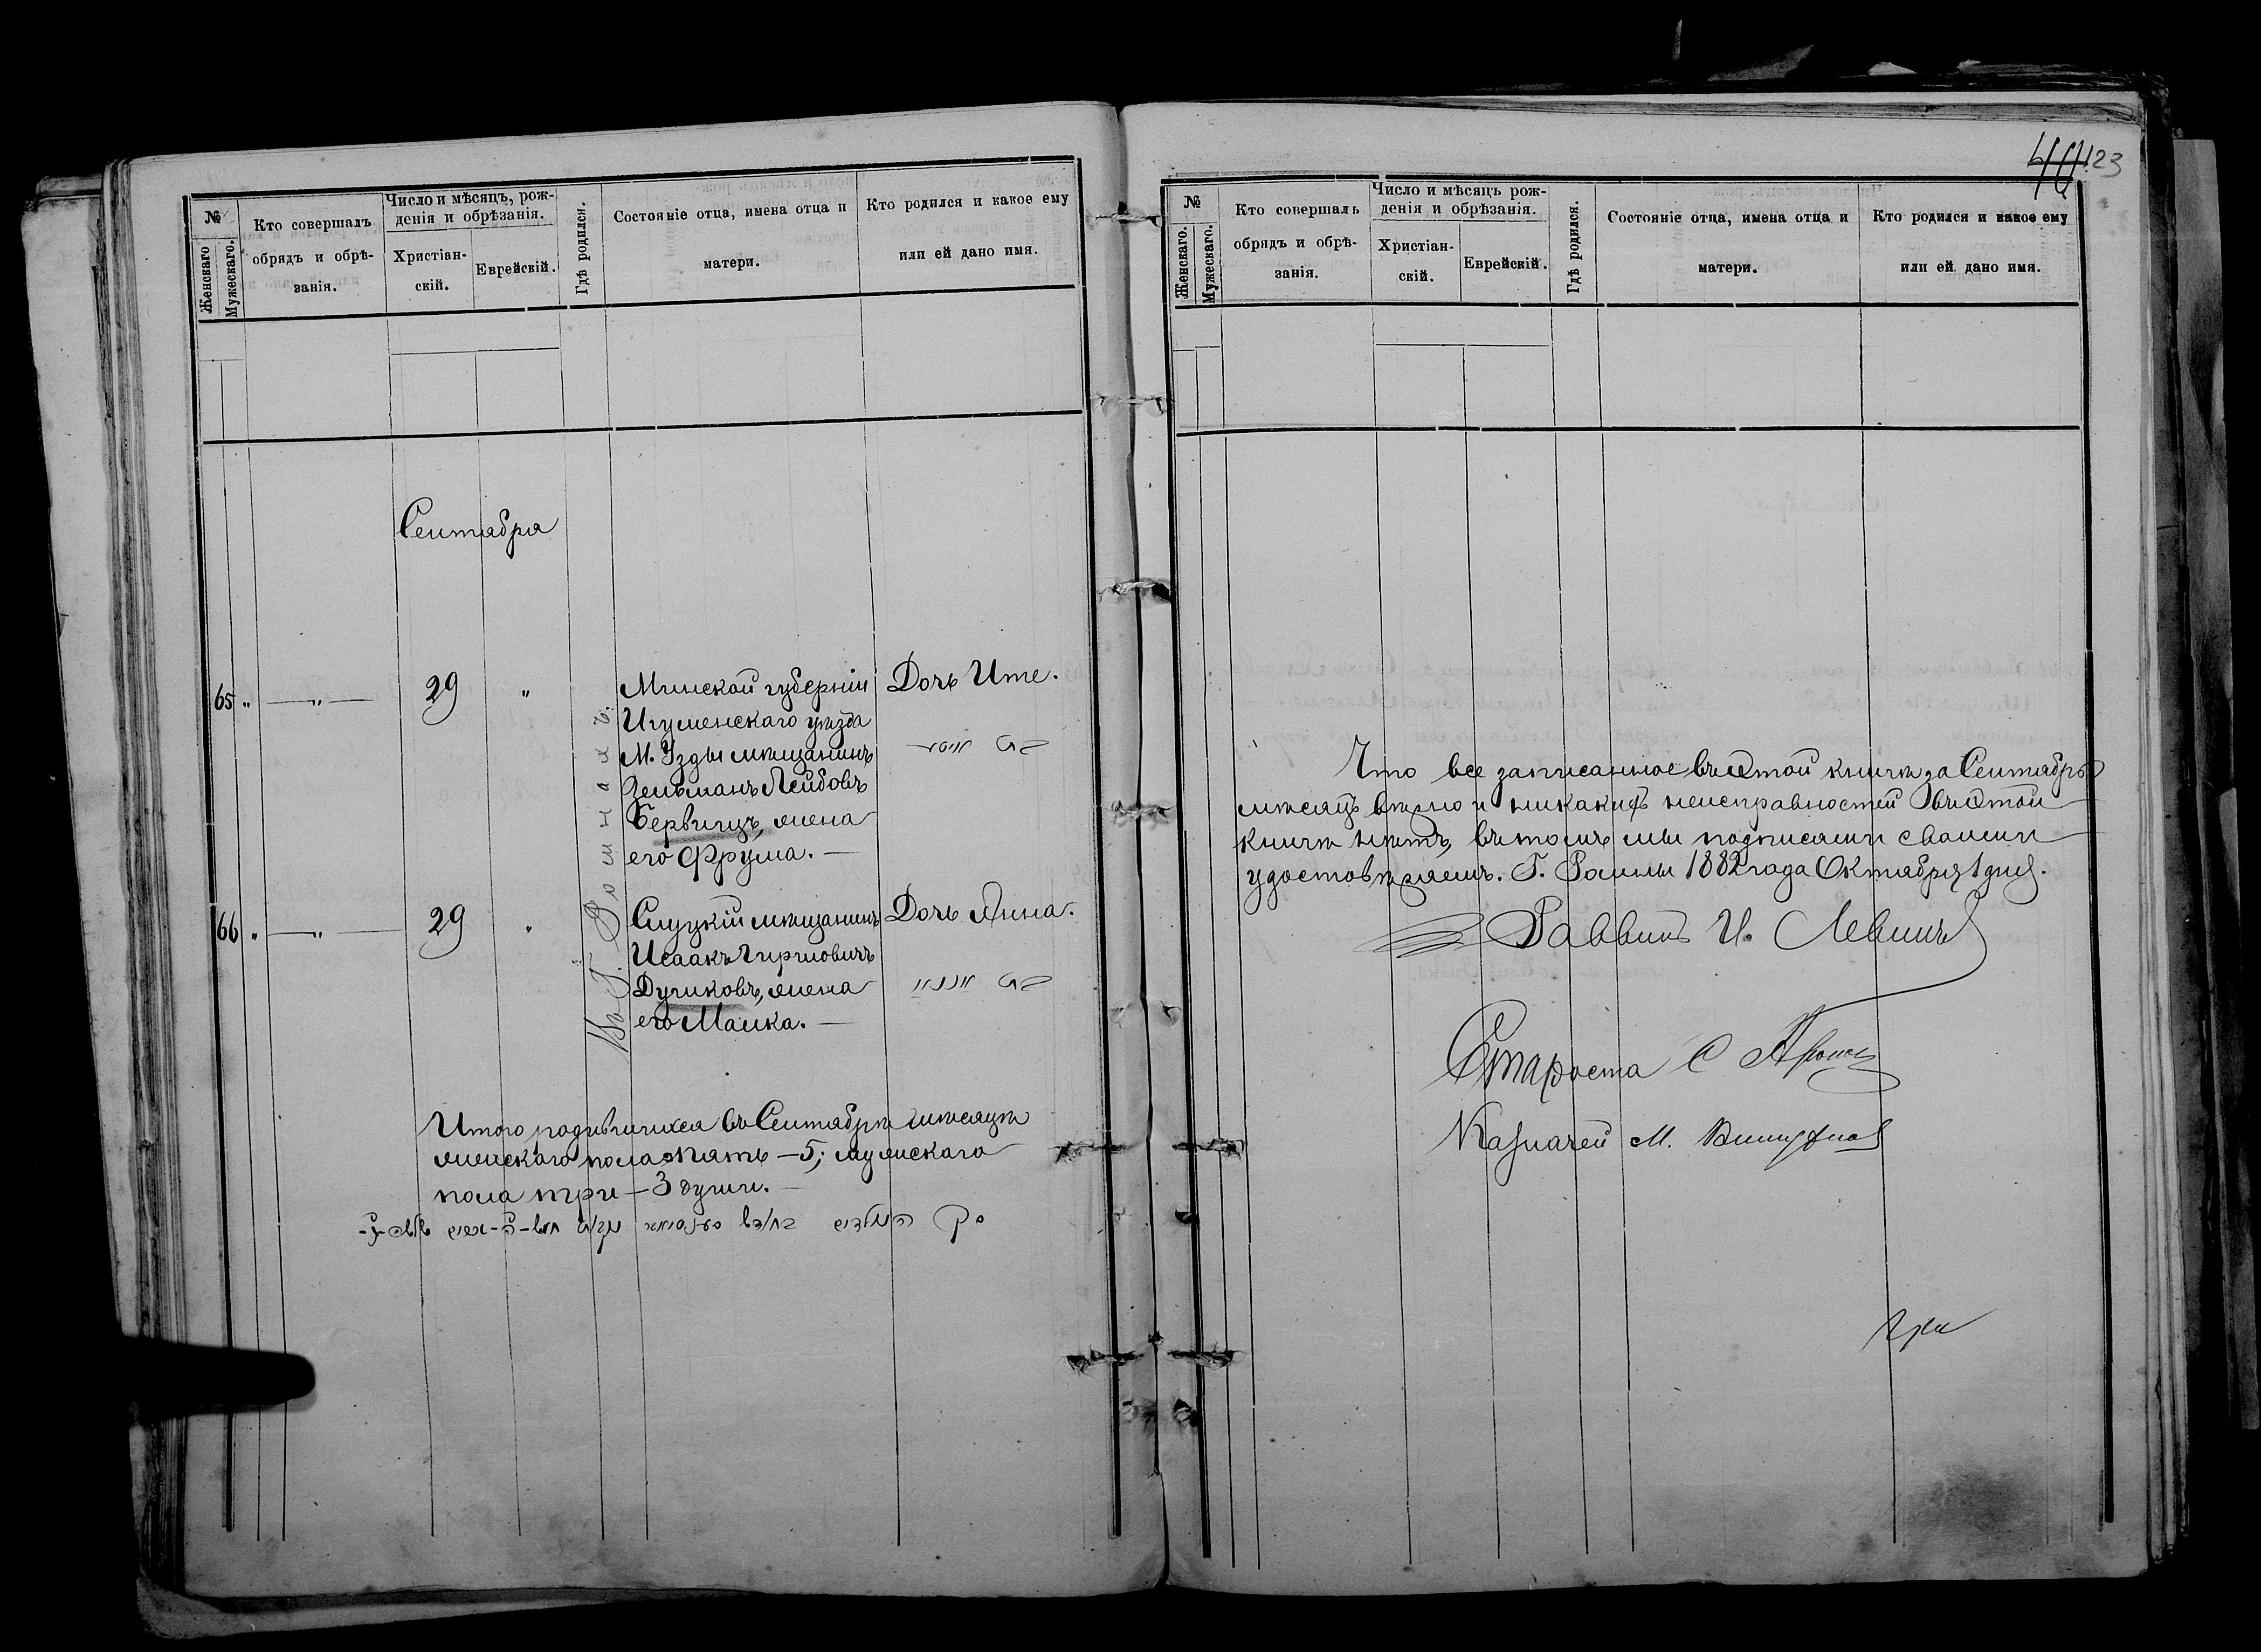 №
Женскаго
Мужескаго.
Кто совершалъ
обрядъ и обрѣ-
занія.
Число и мѣсяцъ, рож-
денія и обрѣзанія.
Христіан-
скій.
Еврейскій.
Гдѣ родился.
Состояніе отца, имена отца и
матери.
Кто родился и какое ему
или ей дано имя.
Сентября
65 " — " — 29 "
Минской губерніи
Игуменскаго уѣзда
М. Узды мѣщанинъ
Зельманъ Лейбовъ
Бервицъ, жена
его Фрума. —
Дочь Ите.
66 " — " — 29 "
Слуцкій мѣщанинъ
Исаакъ Гиршовичъ
Дучиковъ, жена
его Малка. —
Дочь Анна.
Въ Г. Ромнахъ.
Итого родившихся въ Сентябрѣ мѣсяцѣ
женскаго пола пять — 5; мужескаго
пола три — 3 души. —
123
№
Женскаго.
Мужескаго.
Кто совершалъ
обрядъ и обрѣ-
занія.
Число и мѣсяцъ рож-
денія и обрѣзанія.
Христіан-
скій.
Еврейскій.
Гдѣ родился.
Состояніе отца, имена отца и
матери.
Кто родился и какое ему
или ей дано имя.
Что все записанное въ этой книгѣ за Сентябрь
мѣсяцъ вѣрно и никакихъ неисправностей въ этой
книгѣ нѣтъ, въ томъ мы подписями своими
удостовѣряемъ. Г. Ромны 1882 года Октября 1 дня.
Раввинъ И. Левинъ
Староста С
Казначей М.